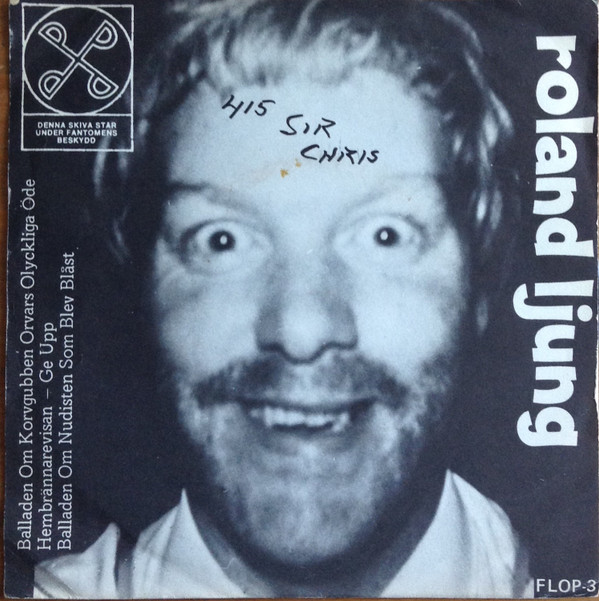 DENNA SKIVA STÅR
UNDER FANTOMENS
BESKYDD
415
SIR
CHRIS
roland ljung
Balladen Om Korvgubben Orvars Olyckliga Öde
Hembrännarevisan – Ge Upp
Balladen Om Nudisten Som Blev Blåst
FLOP-3